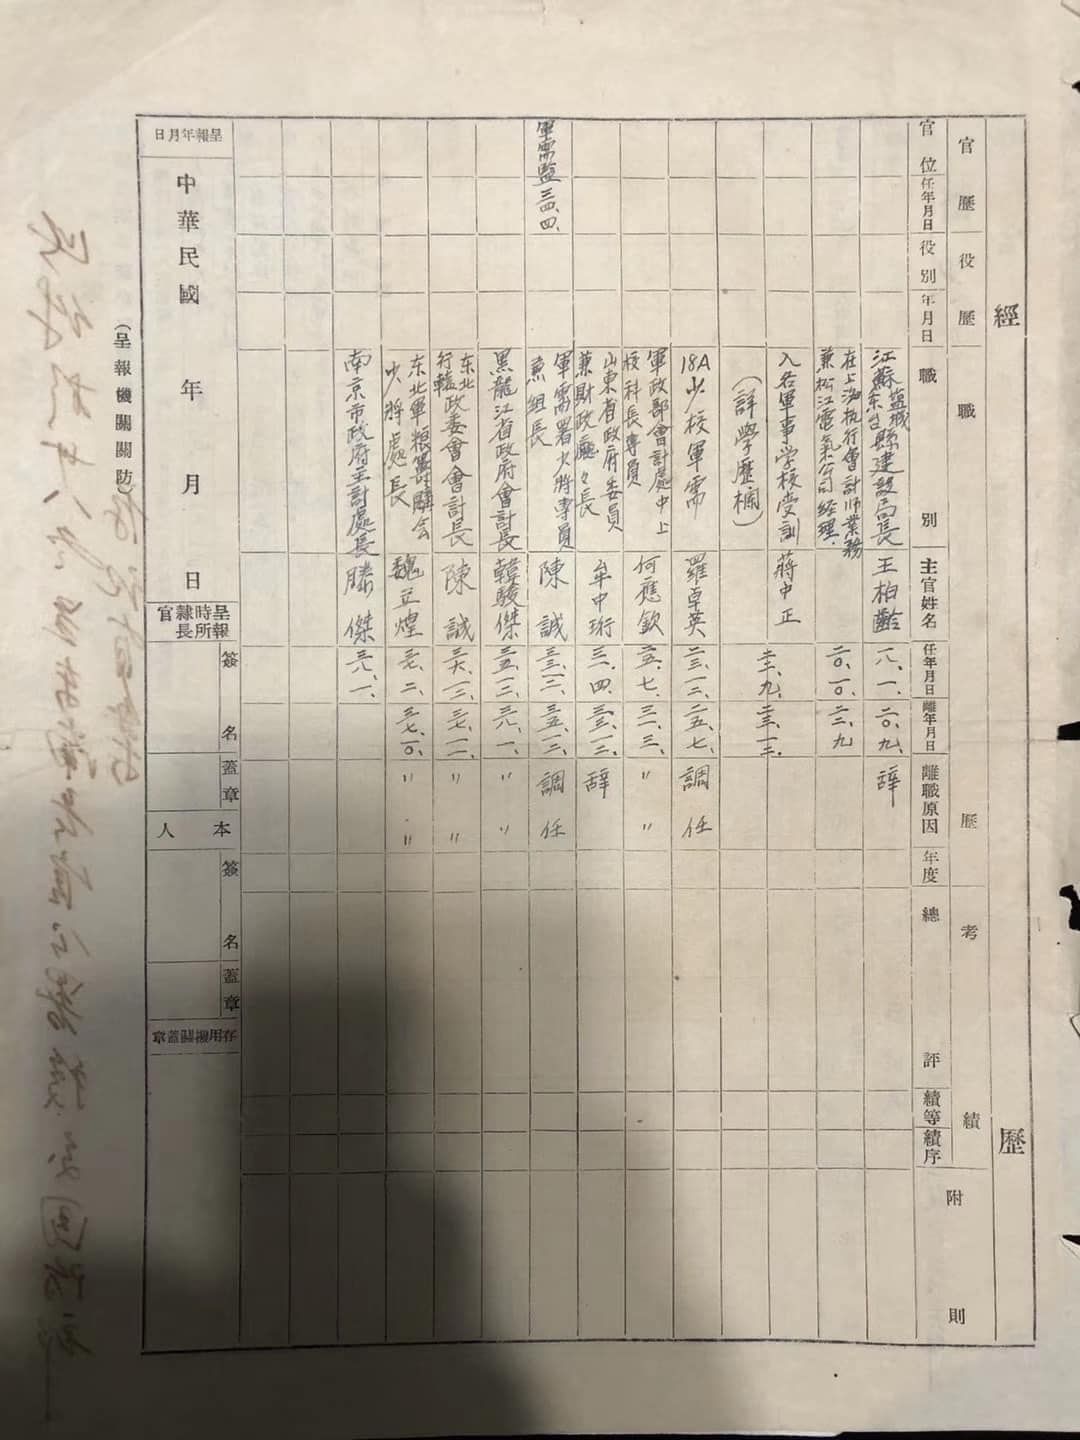 經歷
官歷
役歷
職歷
考績
附則
官位
任年月日
役別
年月日
職別
主官姓名
任年月日
離年月日
離職原因
年度
總評
績等
績序
江蘇鹽城東台縣建設局長 王柏齡 一八、一、 二〇、九、 辞
在上海执行會計师業務
兼松江電氣公司経理. 二〇、一〇、 二二、九
入各軍事学校受訓 蔣中正 二二、九、 二三、一二、
(詳學歷欄)
18A少校軍需 羅卓英 二三、一二、 二五、七、 調任
軍政部會計處中上
校科長專員 何應欽 二五、七、 三一、三、 〃 〃
山東省政府委員
兼財政廳々長 牟中珩 三一、四、 三三、一二、 辞
軍需監 三四、四、
軍需署少將專員
兼組長 陳誠 三三、一二、 三五、一二、 調任
黑龍江省政府會計長 韓駿傑 三五、一二、 三八、一、 〃 〃
东北
行轅政委會會計長 陳誠 三六、一二、 三七、一一、 〃 〃
东北軍粮籌購会
少將處長 魏立煌 三七、二、 三七、一〇、 〃 〃
南京市政府主計處長 滕傑 三八、一、
呈報年月日
中華民國 年 月 日
呈報時所隸長官
簽名
蓋章
本人
簽名
蓋章
存用機關蓋章
(呈報機關關防)